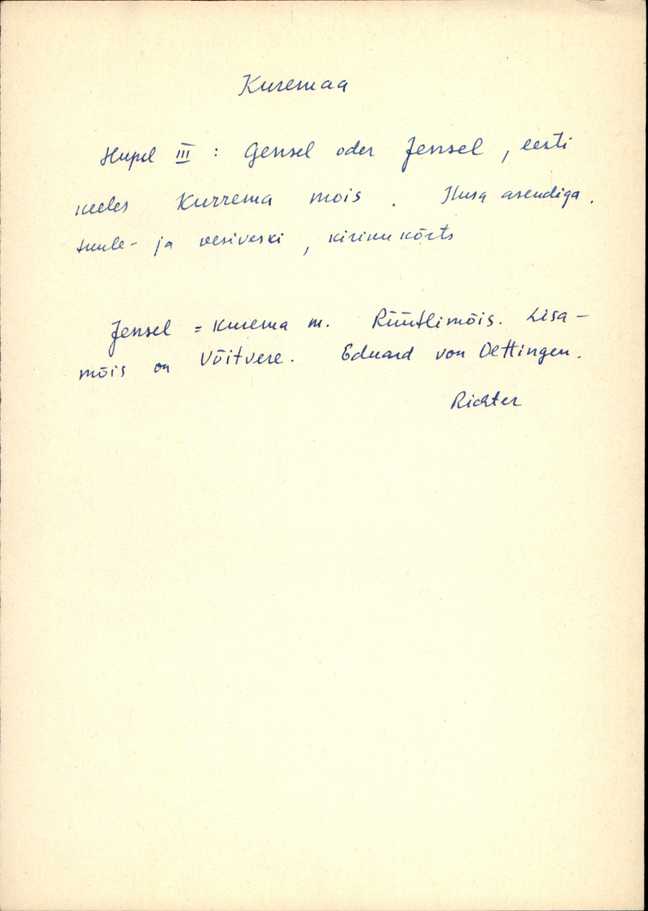 Kuremaa
Hupel III : Gensel oder Jensel, eesti
keeles Kurrema mois. Ilusa asendiga.
tuule- ja vesiveski, kirikukõrts
Jensel = Kurema m. Rüütlimõis. Lisa-
mõis on Võitvere. Eduard von Oettingen.
Richter